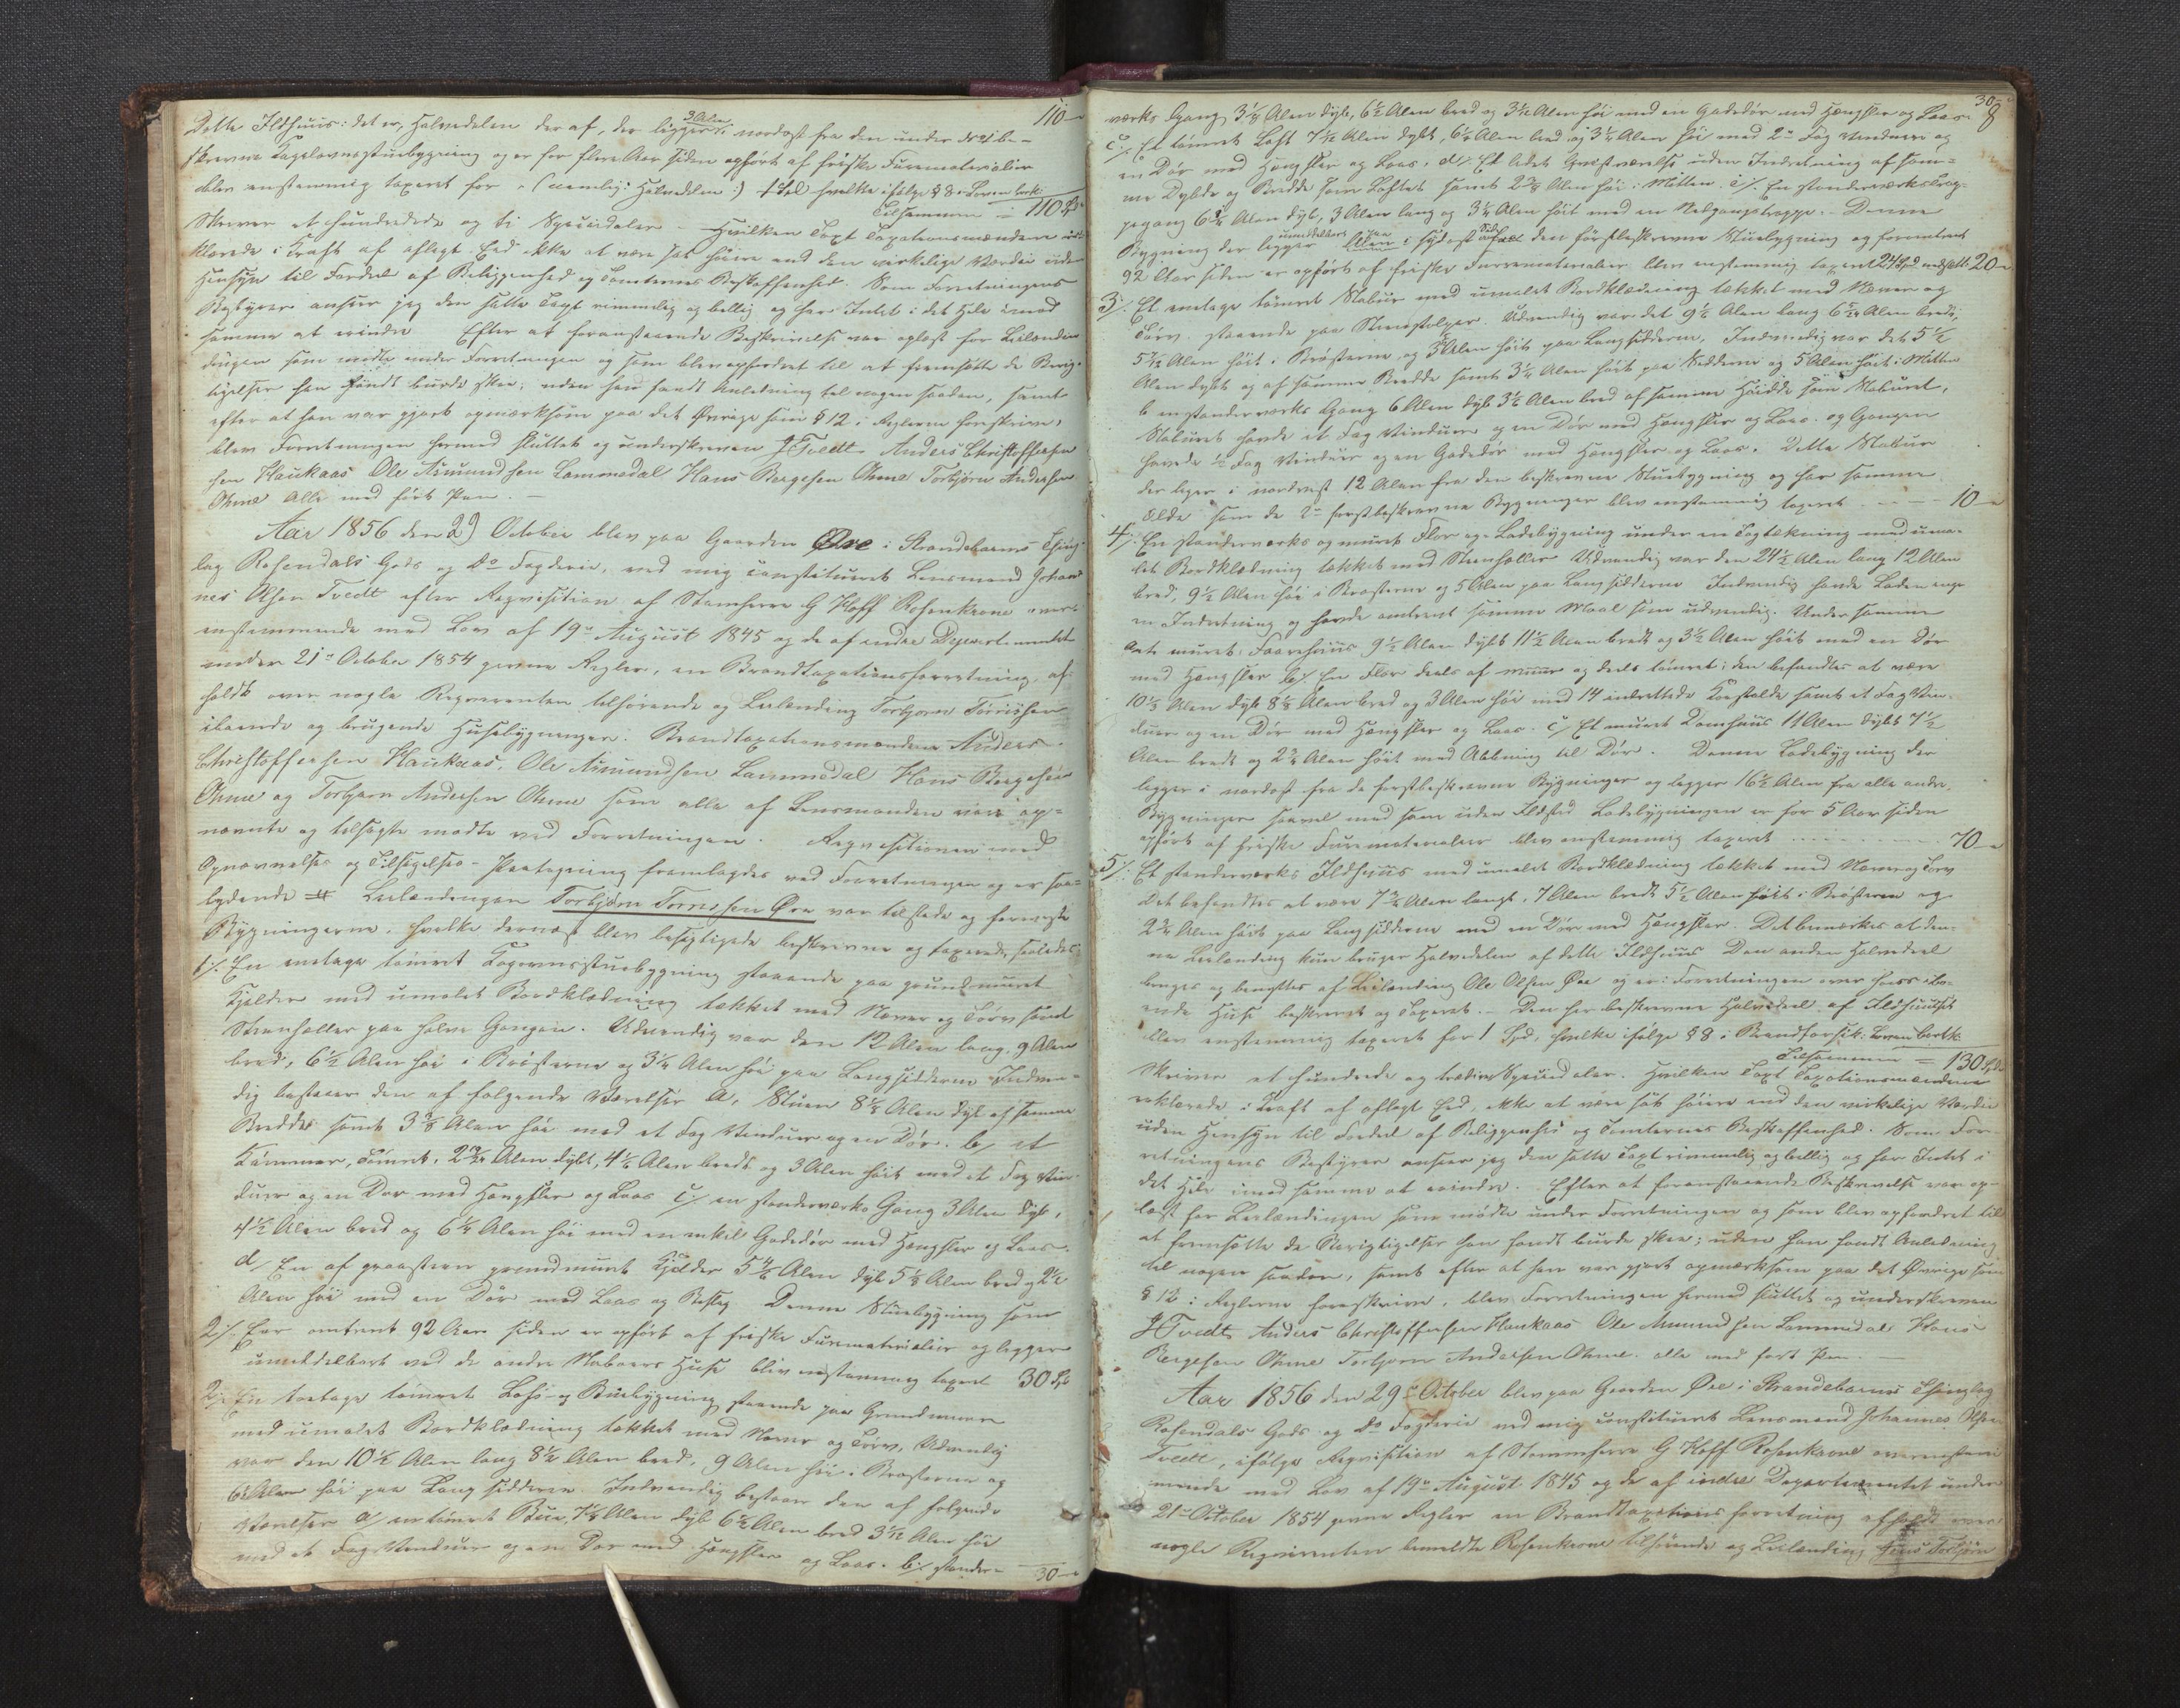 110 -
Dette Ildhuus: det er, Halvedelen deraf, der ligger 3 Alen i nordost fra den under No 1 be-
skrevne Røgelovnsstuebygning og er for flere Aar siden opført af friske Furematerialier
blev enstemmig taxeret for - (nemlig: Halvdelen :) 1 Spd hvilke ifølge § 8 i Loven bortk:
Tilsammen = 110 Spd
Skriver et Hundrede og ti Speciedaler. - Hvilken Taxt Taxationsmændene er-
klærede i Kraft af aflagt Eed ikke at være sat høiere end den virkelige Værdie uden
Hensyn til Fordeel af Beliggenhed og Tomternes Beskaffenhed. Som Forretningens
Bestyrer anseer jeg den satte Taxt rimmelig og billig og har Intet i det Hele imod
samme at erindre. Efter at foranstaaende Beskrivelse var oplæst for Leilændin
dingen som mødte under Forretningen og som blev opfordret til at fremsætte de Berig-
tigelser han fandt burde skee; uden han fandt Anledning til nogen saadan, samt
efter at han var gjort opmærksom paa det Øvrige som § 12 i Reglerne foreskriver,
blev Forretningen hermed sluttet og underskreven J Tvedt. Anders Christoffersen
sen Haukaas Ole Amundsen Lammedal Hans Bergesen Ohme Torbjørn Andersen
Ohme alle med ført Pen. -
Aar 1856 den 29 October blev paa Gaarden Øre i Strandebarms Thing-
lag Rosendals Gods og Do Fogderie, ved mig constitueret Lensmand Johan-
nes Olsen Tvedt efter Reqvisition af Stamherre G Hoff Rosenkrone over-
ensstemmende med Lov af 19de August 1845 og de af indre Departementet
under 21de October 1854 givne Regler, en Brandtaxationsforretning af-
holdt over nogle Reqvirenten tilhørende og Leilænding Torbjørn Tørrissen
iboende og brugende Huusebygninger. Brandtaxationsmændene Anders
Christoffersen Haukaas, Ole Amundsen Lammedal Hans Bergesen
Ohme og Torbjørn Andersen Ohme som alle af Lensmanden vare op-
nævnte og tilsagte mødte ved Forretningen. Reqvisitionen med
Opnævnelses og Tilsigelses-Paategning fremlagdes ved Forretningen og er saa-
lydende # Leilændingen Torbjørn Tørrissen Øre var tilstede og foreviste
Bygningerne, hvilke dernæst blev besigtigede beskrevne og taxerede saaledes:
1/. En enetages tømret Røgovnsstuebygning staaende paa grundmuret
Kjelder med umalet Bordklædning tækket med Næver og Tørv samt
Steenheller paa halve Gangen. Udvendig var den 12 Alen lang, 9 Alen
bred, 6½ Alen høi i Røsterne og 3¼ Alen høi paa Langsidderne Indven-
dig bestaaer den af følgende Værelser a, Stuen 8¼ Alen dyb af samme
Bredde samt 3⅛ Alen høi med et Fag Vinduer og en Dør. b, et
Kammer, tømret, 2 Alen dybt, 4⅙ Alen bredt og 3 Alen høit med et Fag Vin-
duer og en Dør med Hængsler og Laas c/. en standerværks Gang 3 Alen dyb,
4½ Alen bred og 6¼ Alen høi med en enkel Gadedør med Hængsler og Laas.
d/ En af graasteen grundmuret Kjelder 5 Alen dyb 5¼ Alen bred og 2½
Alen høi med en Dør med Laas og Beslag Denne Stuebygning som
2/. for omtrent 92 Aar siden er opført af friske Furematerialier og ligger
umiddelbart ved de andre Naboers Huse blev enstemmig taxeret 30 Spd
2/. En toetages tømret Lofts- og Buebygning staaende paa Grundmuur
med umalet Bordklædning tækket med Næver og Tørv, Udvendig
var den 10½ Alen lang 8½ Alen bred, 9 Alen høi i Brøsterne og
6 Alen høi paa Langsidderne. Indvendig bestaaer den af følgende
Værelser a/ en tømret Bue, 7¼ Alen dyb 6½ Alen bred 3½ Alen høi
med et Fag Vinduer og en Dør med Hængsler og Laas. b/. stander-
30 -
30 - 8
værks Gang 3¼ Alen dyb, 6½ Alen bred og 3½ Alen høi med en Gadedør med Hængsler og Laas.
c/. Et tømret Loft 7½ Alen dybt, 6½ Alen bred og 3½ Alen høi med 2de Fag Vinduer og
en Dør med Hængsler og Laas. d/. Et lidet Qvistværelse uden Indretning af sam-
me Dybde og Bredde som Loftet samt 2⅞ Alen høi i Mitten. e/. En standerværks Trap-
pegang 6¾ Alen dyb, 3 Alen lang og 3¼ Alen høit med en Nedgangstrappe. - Denne
Bygning der ligger umiddelbart paa i sydost Side den førstbeskrevne Stuebygning og foromtrent
92 Aar siden er opført af friske Furrematerialier blev enstemmig taxeret 24 Spd nedsatt 20 -
3/. Et enetages tømret Stabur med umalet Bordklædning tækket med Næver og
Tørv staaende paa Steenstolper. Udvendig var det 9½ Alen lang 6 Alen bredt,
5½ Alen høit i Brøsterne og 3 Alen høit paa Langsidderne, Indvendig var det 5½
Alen dybt og af samme Bredde samt 3¼ Alen høit paa Sidderne og 5 Alen høit i Mitten
b en standerværks Gang 6 Alen dyb 3½ Alen bred af samme Høidde som Staburet,
Staburet havde et Fag Vinduer og en Dør med Hængsler og Laas. og Gangen
havde ½ Fag Vinduer og en Gadedør med Hængsler og Laas. Dette Stabur
der liger i nordvest 12 Alen fra den beskrevne Stuebygning og har samme
Ælde som de 2de førstbeskrevne Bygninger blev enstemmig taxeret - - - 10 -
4/. En standerværks og muret Flor og Ladebygning under en Tagtækning med uma-
let Bordklædning tækket med Steenheller Udvendig var den 24½ Alen lang 12 Alen
bred, 9½ Alen høi i Brøsterne og 5 Alen paa Langsidderne Indvendig havde Laden inge
en Indretning og havde omtrent samme Maal som udvendig. Under samme
a et muret Faarehuus 9½ Alen dybt 11½ Alen bredt og 3½ Alen høit med en Dør
med Hængsler b/. En Flor deels af muur og deels tømret; den befandtes at være
10½ Alen dyb 8½ Alen bred og 3 Alen høi med 14 indrettede Koestalde samt et Fag Vin-
duer og en Dør med Hængsler og Laas. c/ Et muret Tomhuus 11 Alen dybt 7½
Alen bredt og 2¾ Alen høit med Aabning til Dør. Denne Ladebygning der
ligger i nordost fra de førstbeskrevne Bygninger og ligger 16½ Alen fra alle andre
Bygninger saavel med som uden Ildsted Ladebygningen er for 5 Aar siden
opført af friske Furematerialier blev enstemmig taxeret - - - 70 -
5/. Et standerværks Ildhuus med umalet Bordklædning tækket med Næver og Tørv
Det befandtes at være 7¾ Alen langt, 7 Alen bredt 5½ Alen høit i Brøsterne og
2¾ Alen høit paa Langsidderne med en Dør med Hængsler. Det bemærkes at den-
ne Leilænding kun bruger Halvedelen af dette Ildhuus Den anden Halvedeel
bruges og benyttes af Leilænding Ole Olsen Øre og er i Forretningen over hans ibo-
ende Huse beskrevet og Taxeret. - Den her beskrevne Halvedeel af Ildhuuset
blev enstemmig taxeret for 1 Spd, hvilke ifølge § 8 i Brandforsik: Loven bortk.
Tilsammen = 130 Spd
Skriver et Hundrede og tredive Speciedaler. Hvilken Taxt Taxationsmændene
erklærede i Kraft af aflagt Eed, ikke at være sat høiere end den virkelige Værdie
uden Hensyn til Fordeel af Beliggenhed og Tomternes Beskaffenhed. Som For-
retningens Bestyrer anseer jeg den satte Taxt rimmelig og billig og har Intet i
det Hele imod samme at erindre. Efter at foranstaaende Beskrivelse var op-
læst for Leilændingen som mødte under Forretningen og som blev opfordret til
at fremsætte de Berigtigelser han fandt burde skee; uden han fandt Anledning
til nogen saadan, samt efter at han var gjort opmærksom paa det Øvrige som
§ 12 i Reglerne foreskriver, blev Forretningen hermed sluttet og underskreven
J Tvedt, Anders Christoffersen Haukaas Ole Amundsen Lammedal Hans
Bergesen Ohme Torbjørn Andersen Ohme. alle med ført Pen. -
Aar 1856 den 29de October blev paa Gaarden Øre i Strandebarms Thinglag
Rosendals Gods og Do Fogderie ved mig constitueret Lensmand Johannes Olsen
Tvedt, ifølge Reqvisition af Stamherre G Hoff Rosenkrone overensstem-
mende med Lov af 19de August 1845 og de af indre Departementet under
21de October 1854 givne Regler en Brandtaxationsforretning afholdt over
nogle Reqvirenten bemeldte Rosenkrone tilhørende og Leilænding Torbjørn